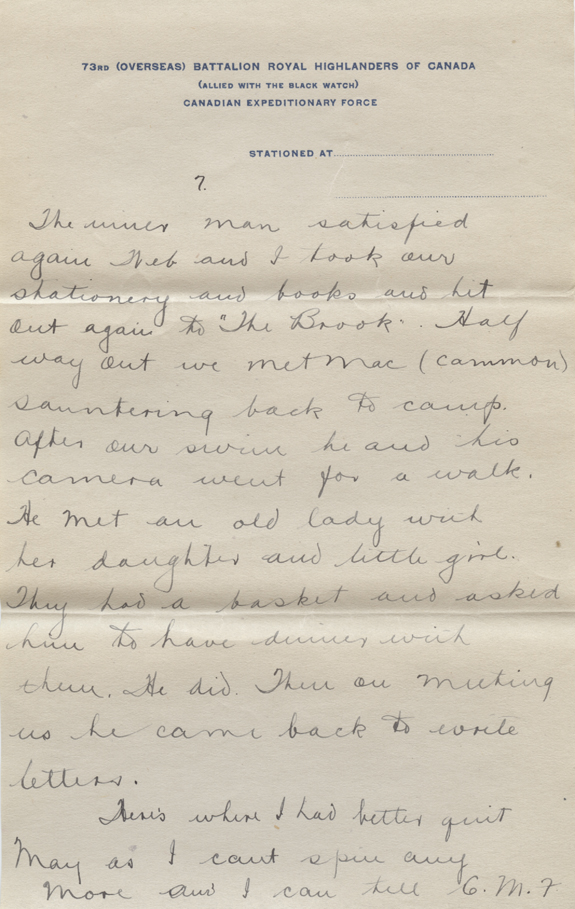 73RD (OVERSEAS) BATTALION ROYAL HIGHLANDERS OF CANADA
(ALLIED WITH THE BLACK WATCH)
CANADIAN EXPEDITIONARY FORCE
STATIONED AT
7.
The inner man satisfied
again Web and I took our
stationery and books and hit
out again to "The Brook". Half
way out we met Mac (cammon)
sauntering back to camp.
After our swim he and his
camera went for a walk.
He met an old lady with
her daughter and little girl.
They had a basket and asked
him to have dinner with
them. He did. Then on meeting
us he came back to write
letters.
Here's where I had better quit
May as I cant spin any
more and I can tell C.M.F